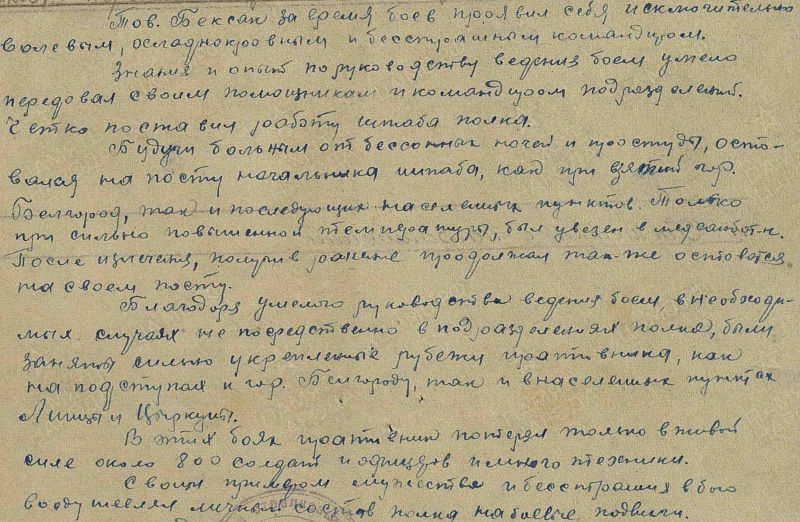 Тов. Бексак за время боев проявил себя исключительно
волевым, осладнокровным и бесстрашным командиром.
Знания и опыт по руководству ведения боем умело
передовал своим помощникам и командиром подразделений.
Четко поставил работу штаба полка.
Будучи больным от бессонных ночей и простуды, осто-
вался на посту начальника штаба, как при взятии гор.
Белгород, так и последующих населенных пунктов. Только
при сильно повышенной температуры, был увезен в медсанбат.
После излеченя, получив ранение продолжал так-же остоватся
на своем посту.
Благодоря умелого руководства ведения боем, в необходи-
мых случаях не посредственно в подразделениях полка, были
заняты сильно укрепленные рубежи противника, как
на подступах к гор. Белгороду, так и в населенных пунктах
Липцы и Цыркуны.
В этих боях противник потерял только в живой
силе около 800 солдат и офицеров и много техники.
Своим примером мужества и бесстрашия в бою
воодушевлял личный состав полка на боевые подвиги.